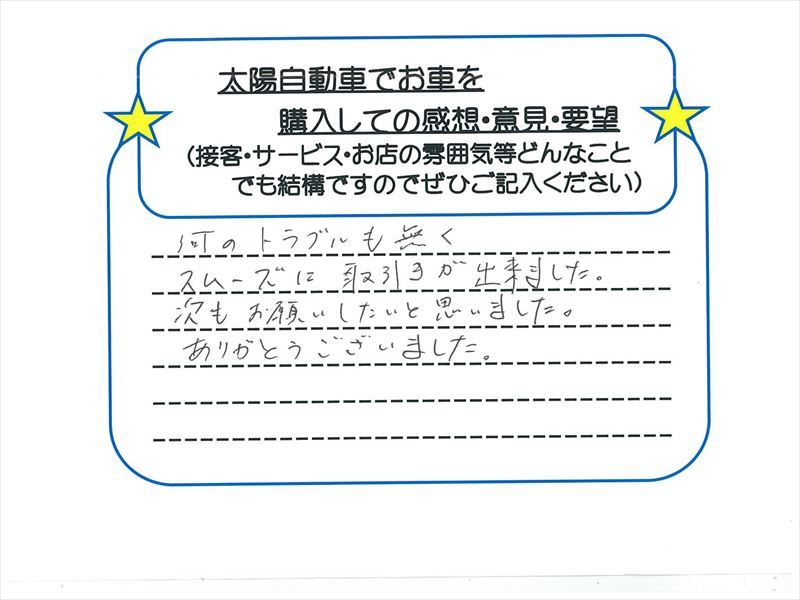 太陽自動車でお車を
購入しての感想・意見・要望
（接客・サービス・お店の雰囲気等どんなこと
でも結構ですのでぜひご記入ください）
何のトラブルも無く
スムーズに取引きが出来ました。
次もお願いしたいと思いました。
ありがとうございました。